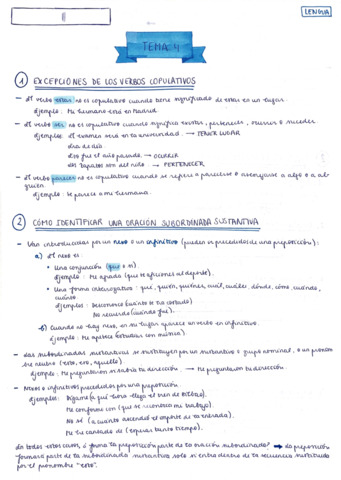 LENGUA
TEMA 4
1 EXCEPCIONES DE LOS VERBOS COPULATIVOS
- El verbo estar no es copulativo cuando tiene significado de estar en un lugar.
Ejemplo: Mi hermano está en Madrid.
- El verbo ser no es copulativo cuando significa existir, pertenecer, ocurrir o suceder.
Ejemplos: El examen será en la universidad. → TENER LUGAR
Era de día.
Eso fue el año pasado. → OCURRIR
Los zapatos son del niño → PERTENECER
- El verbo parecer no es copulativo cuando se refiere a parecerse o asemejarse a algo o a al-
guien.
Ejemplo: Se parece a mi hermana.
2 CÓMO IDENTIFICAR UNA ORACIÓN SUBORDINADA SUSTANTIVA
- Van introducidas por un nexo o un infinitivo (pueden ir precedidos de una preposición):
a) El nexo es:
• Una conjunción (que o si).
Ejemplo: Me agrada (que te aficiones al deporte).
• Una forma interrogativa: qué, quién, quiénes, cuál, cuáles, dónde, cómo, cuándo,
cuánto.
Ejemplos: Desconozco (cuánto te ha costado)
No recuerdo (cuándo fue).
b) Cuando no hay nexo, en su lugar aparece un verbo en infinitivo.
Ejemplo: Me apetece (estudiar con música).
- Las subordinadas sustantivas se sustituyen por un sustantivo o grupo nominal, o un pronom-
bre neutro (esto, eso, aquello).
Ejemplo: Me preguntaron si sabía tu dirección → Me preguntaron tu dirección.
- Nexos o infinitivos precedidos por una preposición.
Ejemplos: Dígame (a qué hora llega el tren de Bilbao).
Me conformo con (que se reconozca mi trabajo).
No sé (a cuánto asciende el importe de la entrada).
Me he cansado de (esperar tanto tiempo).
En todos estos casos, ¿forma la preposición parte de la oración subordinada? → La preposición
formará parte de la subordinada sustantiva solo si entra dentro de la secuencia sustituida
por el pronombre "esto".